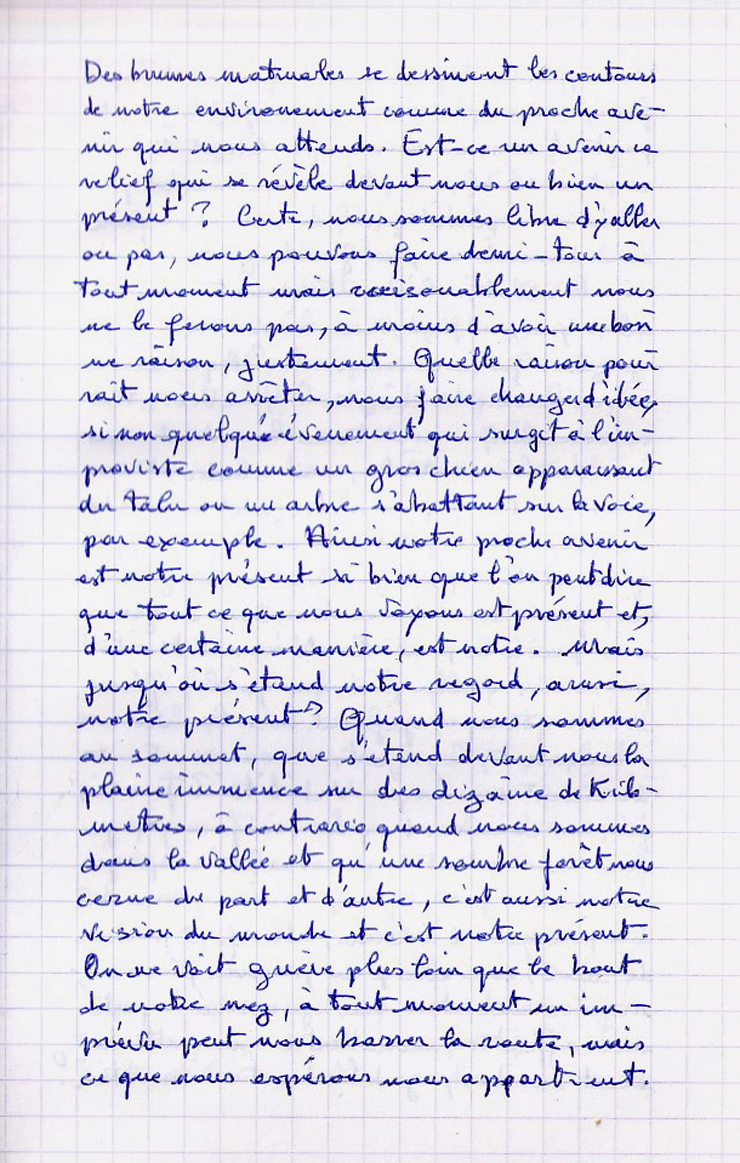 Des brumes matinales se dessinent les contours
de notre environement comme du proche ave-
nir qui nous attends. Est-ce un avenir ce
relief qui se révèle devant nous ou bien un
présent ? Certe, nous sommes libre d'y aller
ou pas, nous pouvons faire demi-tour à
tout moment mais raisonablement nous
ne le ferons pas, à moins d'avoir une bon
ne raison, justement. Quelle raison pour
rait nous arrêter, nous faire changer d'idée,
si non quelque évenement qui surgit à l'im-
proviste comme un gros chien apparaissant
du talu ou un arbre s'abattant sur la voie,
par exemple. Ainsi notre proche avenir
est notre présent si bien que l'on peut dire
que tout ce que nous voyons est présent et,
d'une certaine manière, est notre. Mais
jusqu'où s'étend notre regard, ainsi,
notre présent ? Quand nous sommes
au sommet, que s'etend devant nous la
plaine immence sur des dizaine de kilo-
metres, à contrario quand nous sommes
dans la vallée et qu'une sombre forêt nous
cerne de part et d'autre, c'est aussi notre
version du monde et c'est notre présent.
On ne voit guère plus loin que le bout
de notre nez, à tout moment un im-
prévu peut nous barrer la route, mais
ce que nous espérons nous appartient.